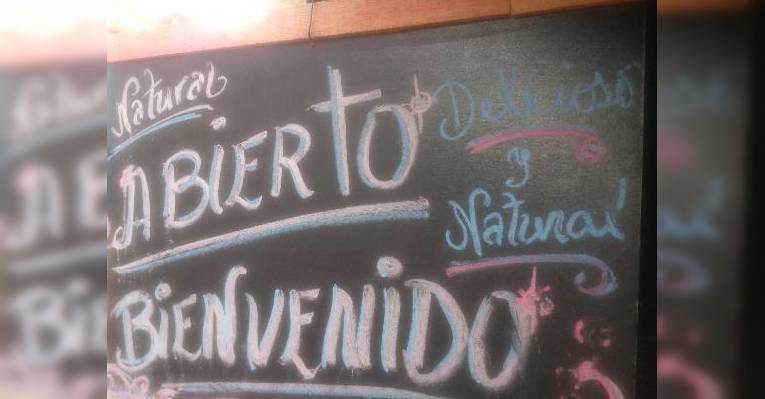 Natural
ABIERTO
BIENVENIDO
Delicioso
y
Natural